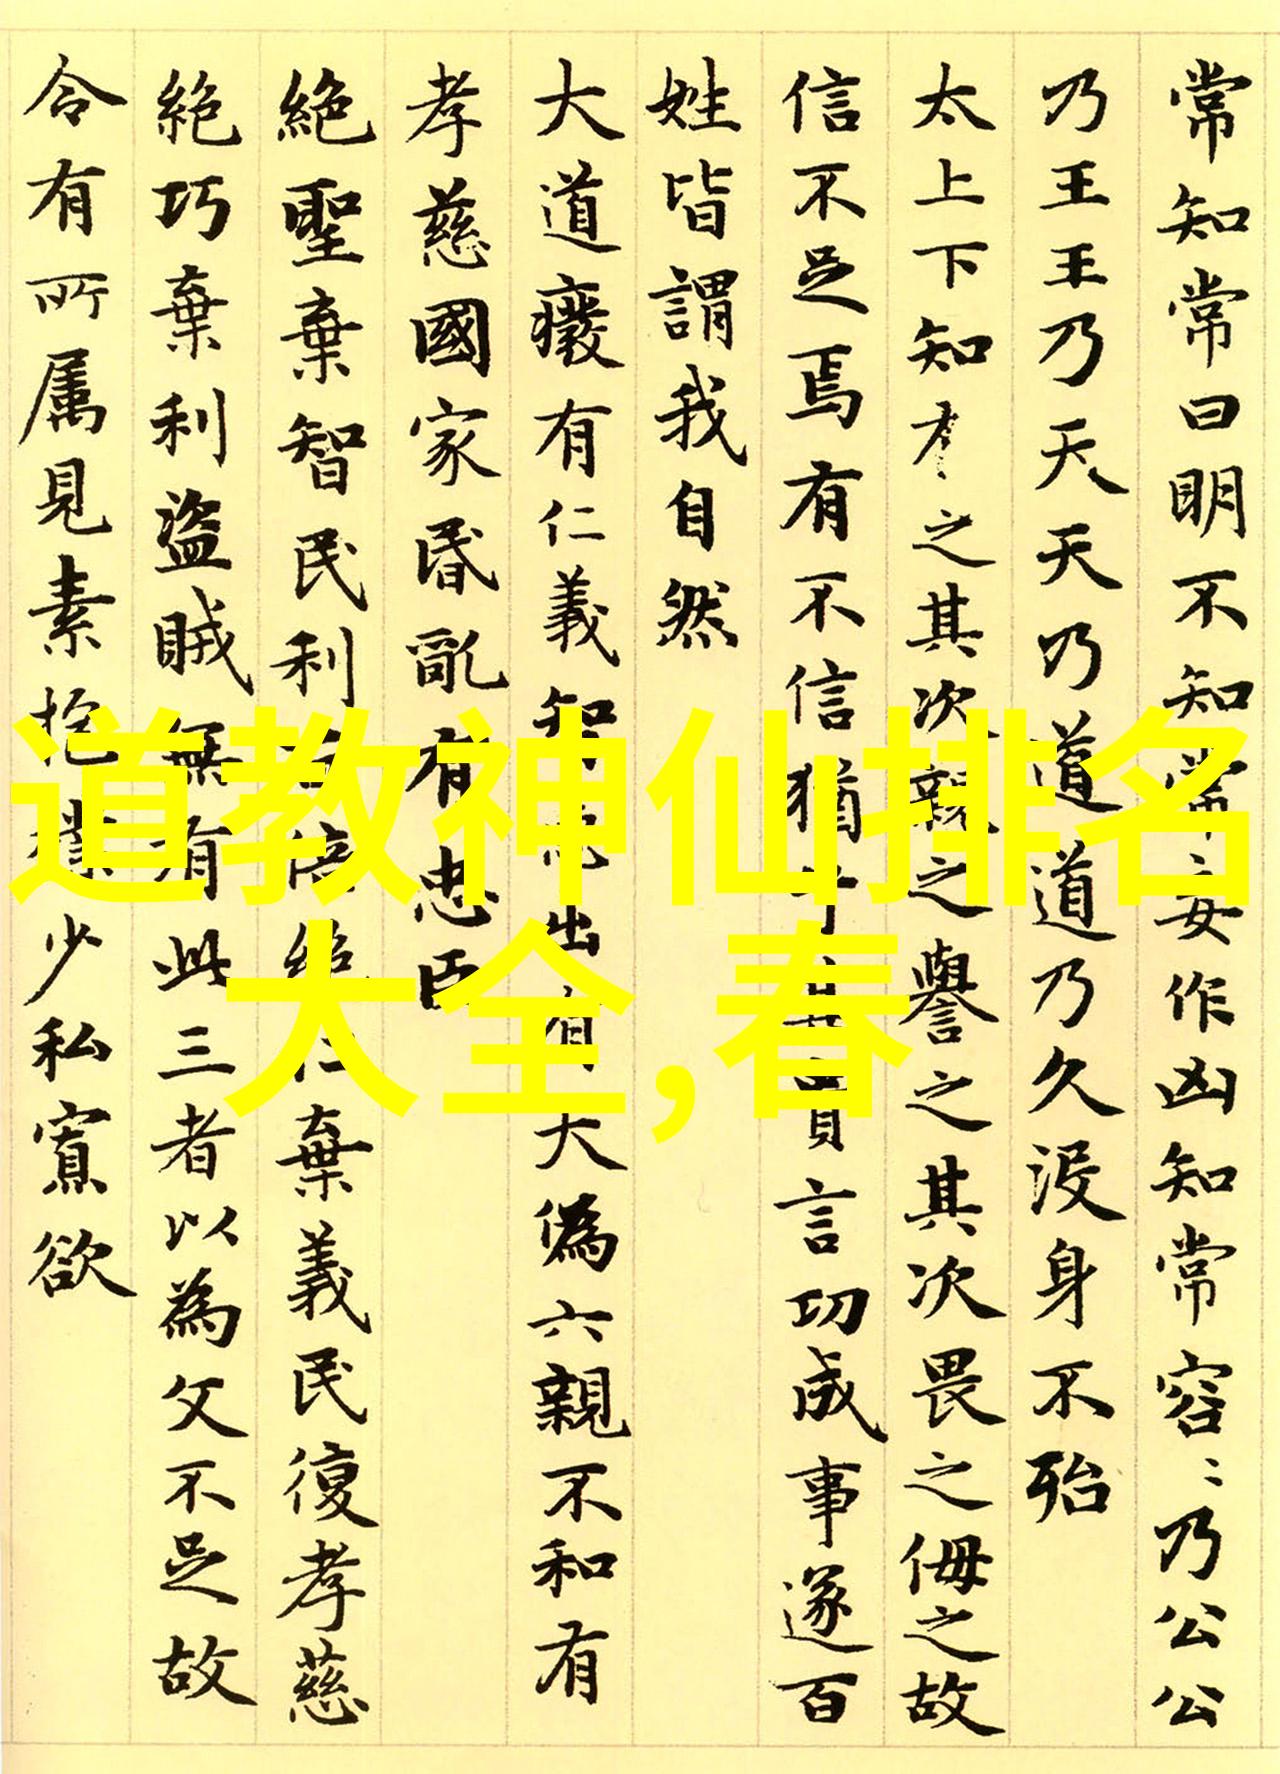 常知常曰明不知知常妄作凶知常容〻乃公公
乃王王乃天天乃道道乃久没身不殆
太上下知有〻之其次親之譽之其次畏之侮之故
信不足焉有不信猶其貴言功成事遂百
姓皆謂我自然
大道癈有仁義智出有大偽六親不和有
孝慈國家昏亂有忠臣
絕聖棄智民利百倍絕仁棄義民復孝慈
絕巧棄利盜賊無有此三者以為文不足故
令有所属見素抱樸少私寡欲
道教神仙排名
大全,春